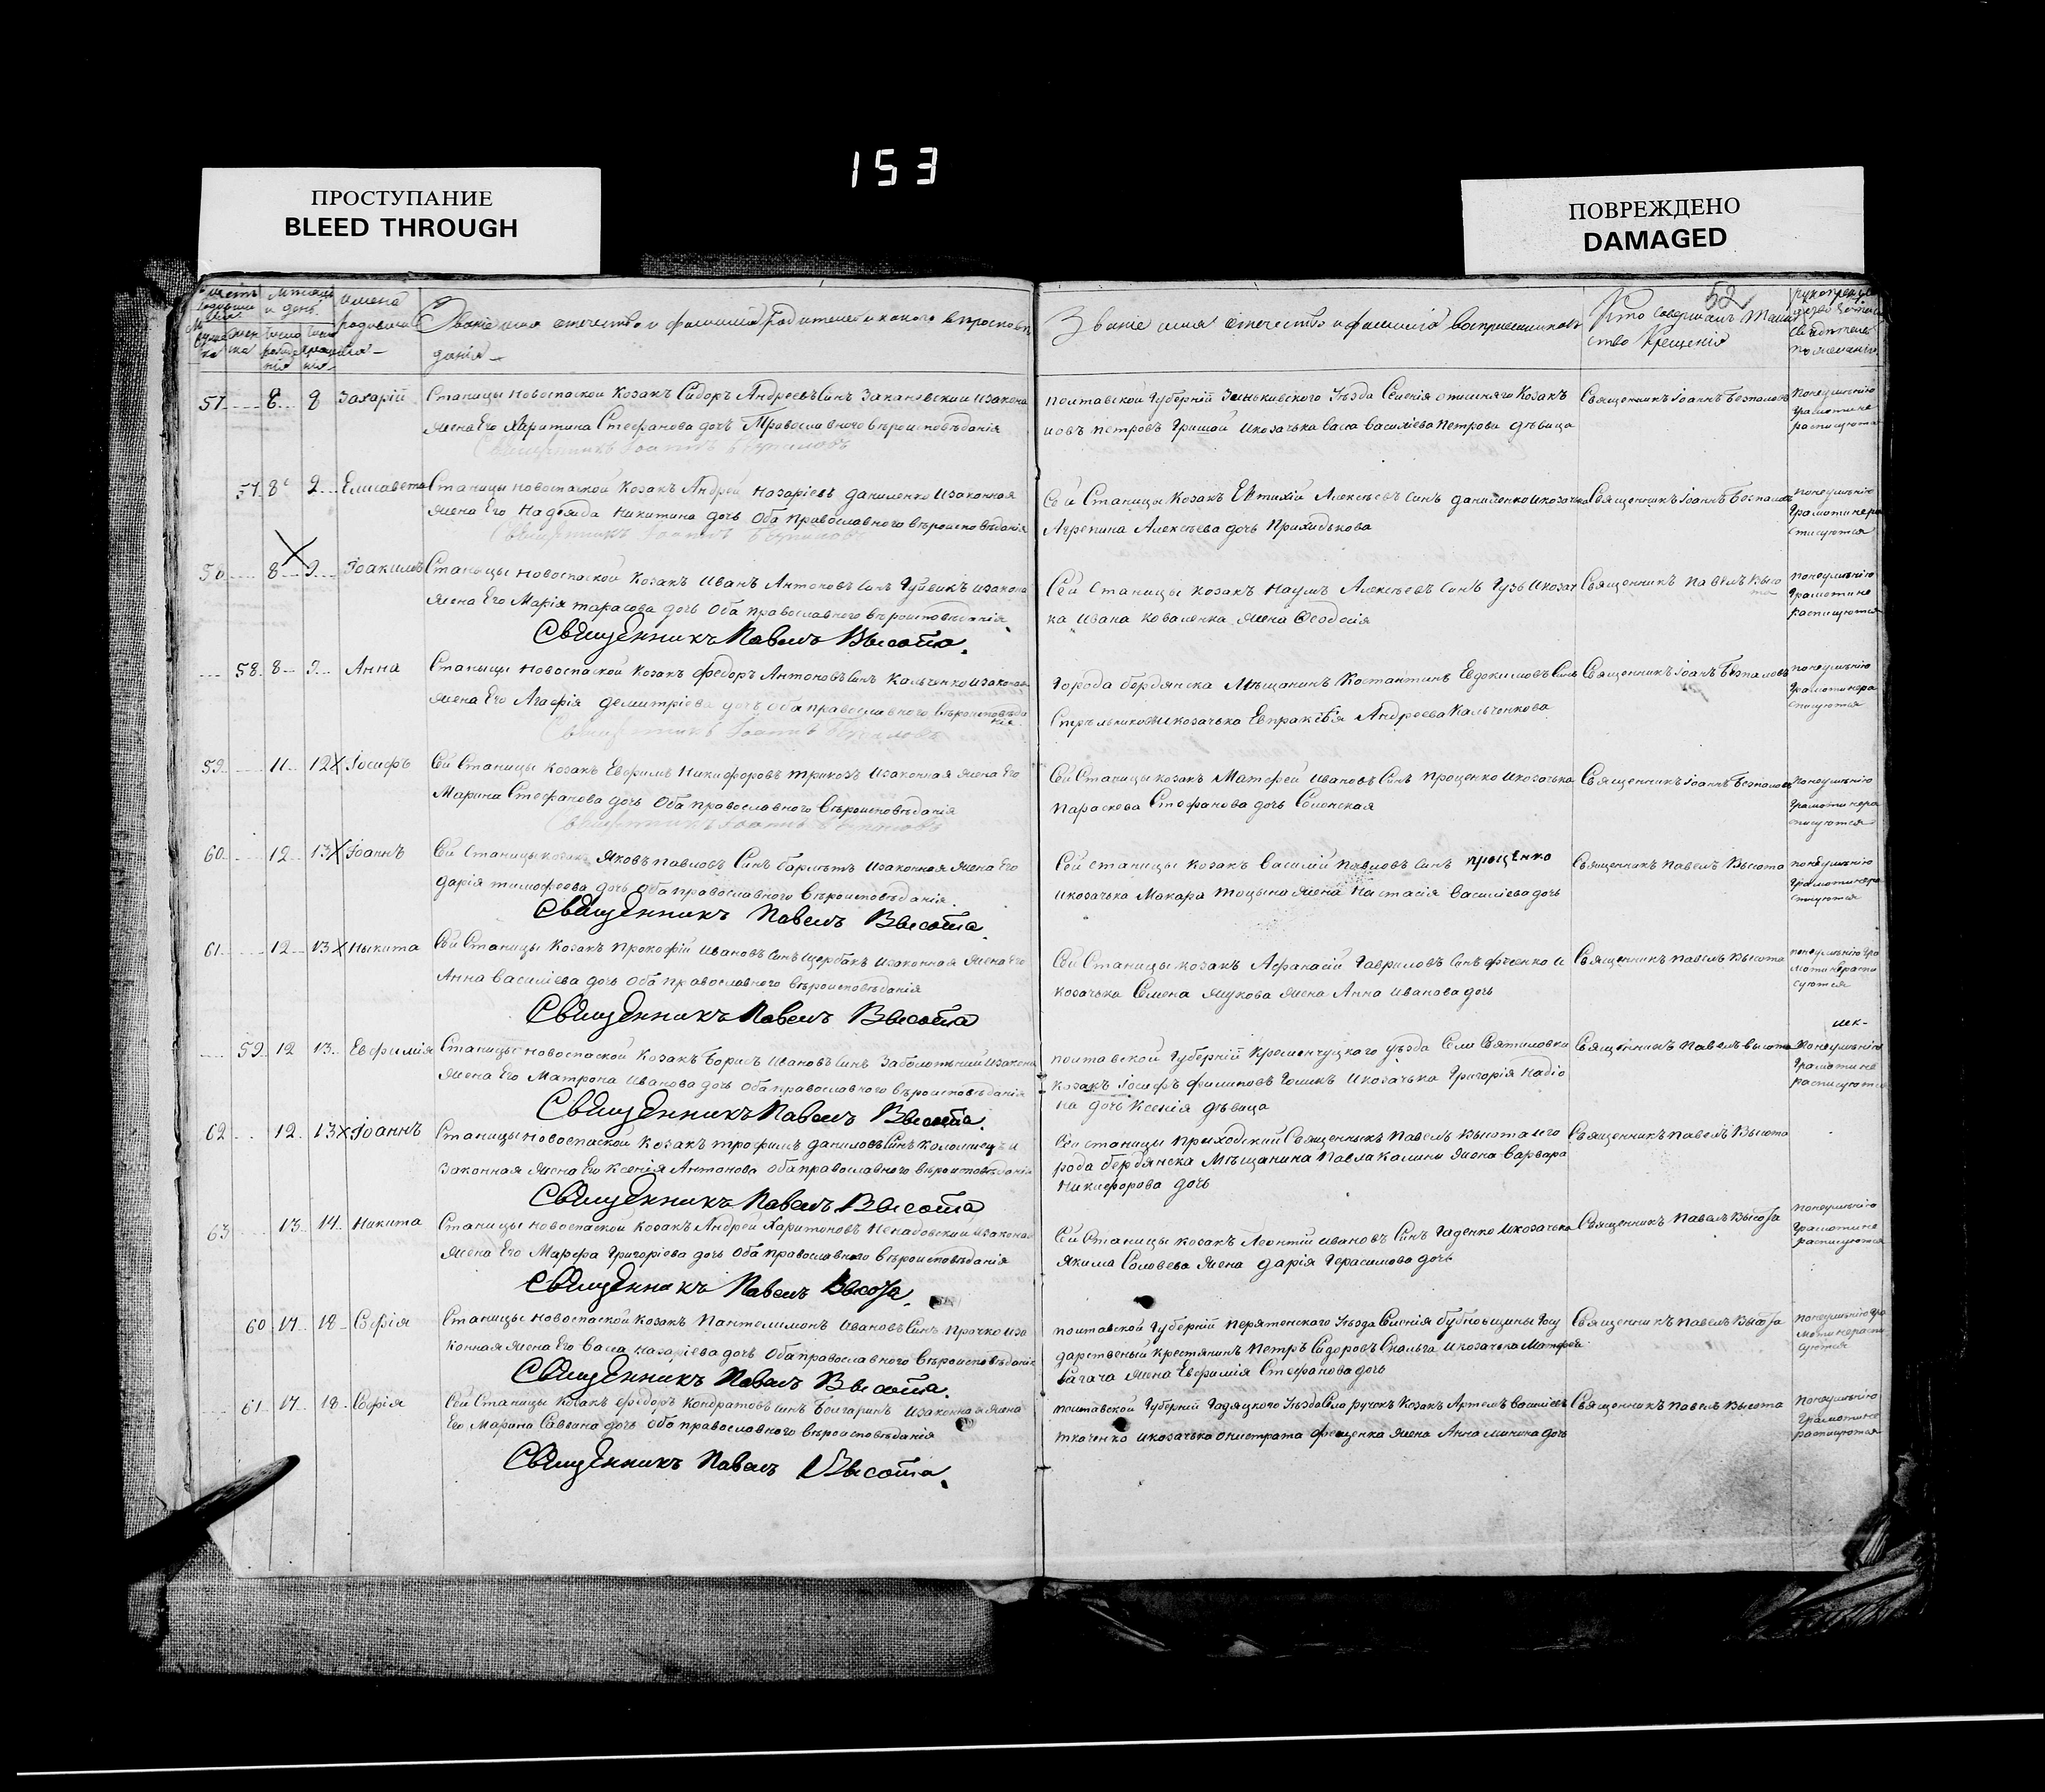 153
ПРОСТУПАНИЕ
BLEED THROUGH
ПОВРЕЖДЕНО
DAMAGED
52
Званіе имя отечество и фамилія родителей и какого вѣроиспове
данія
Званіе имя отечество и фамилія воспріемниковъ
Кто совершалъ Таин
ство Крещенія
57 8 9 Захарій
Станицы Новоспаской Козакъ Сидоръ Андреевъ Синъ Изакона
Жена Его Харитина Стефанова дочъ Православного вѣроисповѣданія
Священникъ Іоаннъ
Полтавской Губерній Зиньковского Уѣзда Козакъ
Петровъ Грицай Икозачька Васа Василіева Петрова дѣвица
Священникъ Іоаннъ
Понеумѣнію
Грамоти не
росписуюта
57 8 9 Елисавета
Станицы Новоспаской Козакъ Андрей Назаріевъ Даниленко Изаконная
Жена Его Надежда Никитина дочъ Оба Православного вѣроисповѣданія
Священникъ Іоаннъ
Сей Станицы Козакъ Евтихій Алексѣевъ Синъ Даниленко Икозачка
Агрепина Алексѣева дочъ Прихидькова
Священникъ Іоаннъ
Понеумѣнію
Грамоти не ра
списуются
58 8 9 Іоакимъ
Станицы Новоспаской Козакъ Иванъ Антоновъ Синъ Изакона
Жена Его Марія Тарасова дочъ Оба Православного вѣроисповѣданія
Священникъ Павелъ Высота.
Сей Станицы Козакъ Наумъ Алексѣевъ Синъ Гузь Икозач
ка Ивана Коваленка Жена Феодосія
Священникъ Павелъ Высо
та
Понеумѣнію
Грамоти не
росписуются
58 8 9 Анна
Станицы Новоспаской Козакъ Федоръ Антоновъ Синъ Кальченко Изаконая
Жена Его Агафія Демитріева дочъ Оба православного вѣроисповѣда
нія
Священникъ Іоаннъ
Города Бердянска Мѣщанинъ Костантинъ Евдокимовъ Синъ
Икозачька Евпраксія Андреева Кальченкова
Священникъ Іоанъ
Понеумѣнію
Грамоти не ра
списуются
59 11 12 Іосифъ
Сей Станицы Козакъ Евфимъ Никифоровъ Трикозъ Изаконная Жена Его
Марина Стефанова дочъ Оба Православного Вѣроисповѣданія
Священникъ Іоаннъ
Сей Станицы Козакъ Матфей Ивановъ Синъ Проценко Икозачька
Параскева Стефанова дочъ
Священникъ Іоаннъ
Понеумѣнію
Грамоти не ра
списуются
60 12 13 Іоаннъ
Сей Станицы козакъ Яковъ Павловъ Синъ Изаконная Жена Его
Дарія Тимофеева дочъ Оба православного вѣроисповѣданія.
Священникъ Павелъ Высота.
Сей Станицы Козакъ Василій Павловъ Синъ Проценко
Икозачька Макара Тоцына Жена Настасія Василіева дочъ
Священникъ Павелъ Высота
Понеумѣнію
Грамоти не ра
списуются
61 12 13 Никита
Сей Станицы Козакъ Прокофій Ивановъ Синъ Щербакъ Изаконная Жена Его
Анна Василіева дочъ Оба Православного вѣроисповѣданія
Священникъ Павелъ Высота
Сей Станицы Козакъ Афанасій Гавриловъ Синъ И
козачька Семена Жукова Жена Анна Иванова дочъ
Священникъ Павелъ Высота
Понеумѣнію гра
моти не распи
суются
59 12 13 Евфимія
Станицы Новоспаской Козакъ Борисъ Ивановъ Синъ Заболотьній Изакона
Жена Его Матрона Иванова дочъ Оба православного вѣроисповѣданія
Священникъ Павелъ Высота.
Полтавской Губерній Кременчуцкого уѣзда Села Святиловки
козакъ Іосифъ Филиповъ Икозачька Григорія
на дочъ Ксенія дѣвица
Священникъ Павелъ Высота
Понеумѣнію
Грамоти не
росписуются
62 12 13 Іоаннъ
Станицы Новоспаской Козакъ Трофимъ Даниловъ Синъ Коломиецъ и
Законная Жена Его Ксенія Антонова Оба православного вѣроисповѣданія
Священникъ Павелъ Высота
Сей станицы Приходский Священникъ Павелъ Высота и го
рода Бердянска Мѣщанина Павла Калини Жена Варвара
Никифорова дочъ
Священникъ Павелъ Высота
63 13 14 Никита
Станицы Новоспаской Козакъ Андрей Харитоновъ Ненадовский Изаконая
Жена Его Марфа Григоріева дочъ Оба Православного вѣроисповѣданія
Священникъ Павелъ Высота.
Сей Станицы Козакъ Леонтій Ивановъ Синъ Гаденко Икозачька
Якима Соловева Жена Дарія Герасимова дочъ
Священникъ Павелъ Высота
Понеумѣнію
Грамоти не
расписуются
60 17 18 Софія
Станицы Новоспаской Козакъ Пантелимонъ Ивановъ Синъ Прочко Иза
конная Жена Его Васа Назаріева дочъ Оба православного вѣроисповѣданія
Священникъ Павелъ Высота.
Полтавской Губерній Перятенского Уѣзда Селенія Бубновщины Госу
дарственый Крестянинъ Петръ Сидоровъ Икозачька Матфея
Багача Жена Евфимія Стефанова дочъ
Священникъ Павелъ Высота
Понеумѣнію гра
моти не распи
суются
61 17 18 Софія
Сей Станицы Козакъ Федоръ Кондратовъ Синъ Болгаринъ Изаконная Жена
Его Марина Саввина дочъ Оба православного вѣроисповѣданія
Священникъ Павелъ Высота.
Полтавской Губерній Гадяцкого Уѣзда Села Ручокъ Козакъ Артемъ Василіевъ
Ткаченко Икозачька Онистрата Жена Анна Минина дочъ
Священникъ Павелъ Высота
Понеумѣнію
Грамоти не
расписуются